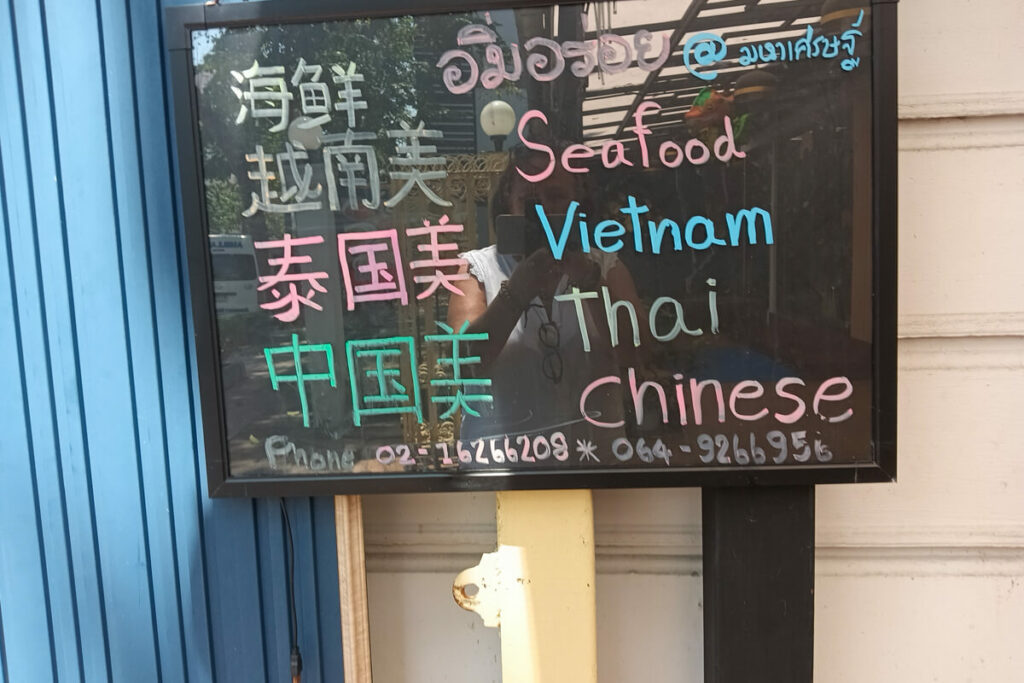 อิ่มอร่อย @ มหาเศรษฐี์
海鲜 Seafood
越南美 Vietnam
泰国美 Thai
中国美 Chinese
Phone 02-16266208 * 064-926695